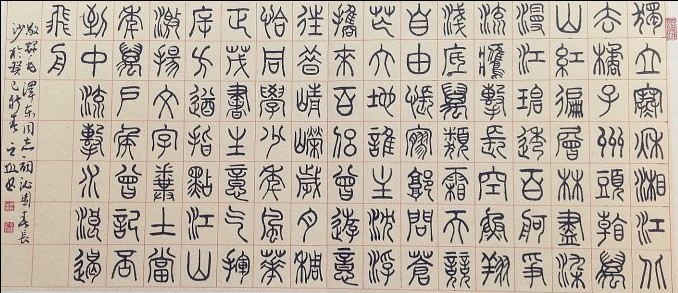 獨立寒秋湘江北
去橘子洲頭看萬
山紅遍層林盡染
漫江碧透百舸爭
流鷹擊長空魚翔
淺底萬類霜天競
自由悵寥廓問蒼
茫大地誰主沈浮
攜來百侶曾遊憶
往昔崢嶸歲月稠
恰同學少年風華
正茂書生意氣揮
斥方遒指點江山
激揚文字糞土當
年萬戶侯曾記否
到中流擊水浪遏
飛舟
敬錄毛澤東同志詞沁園春長
沙於癸巳